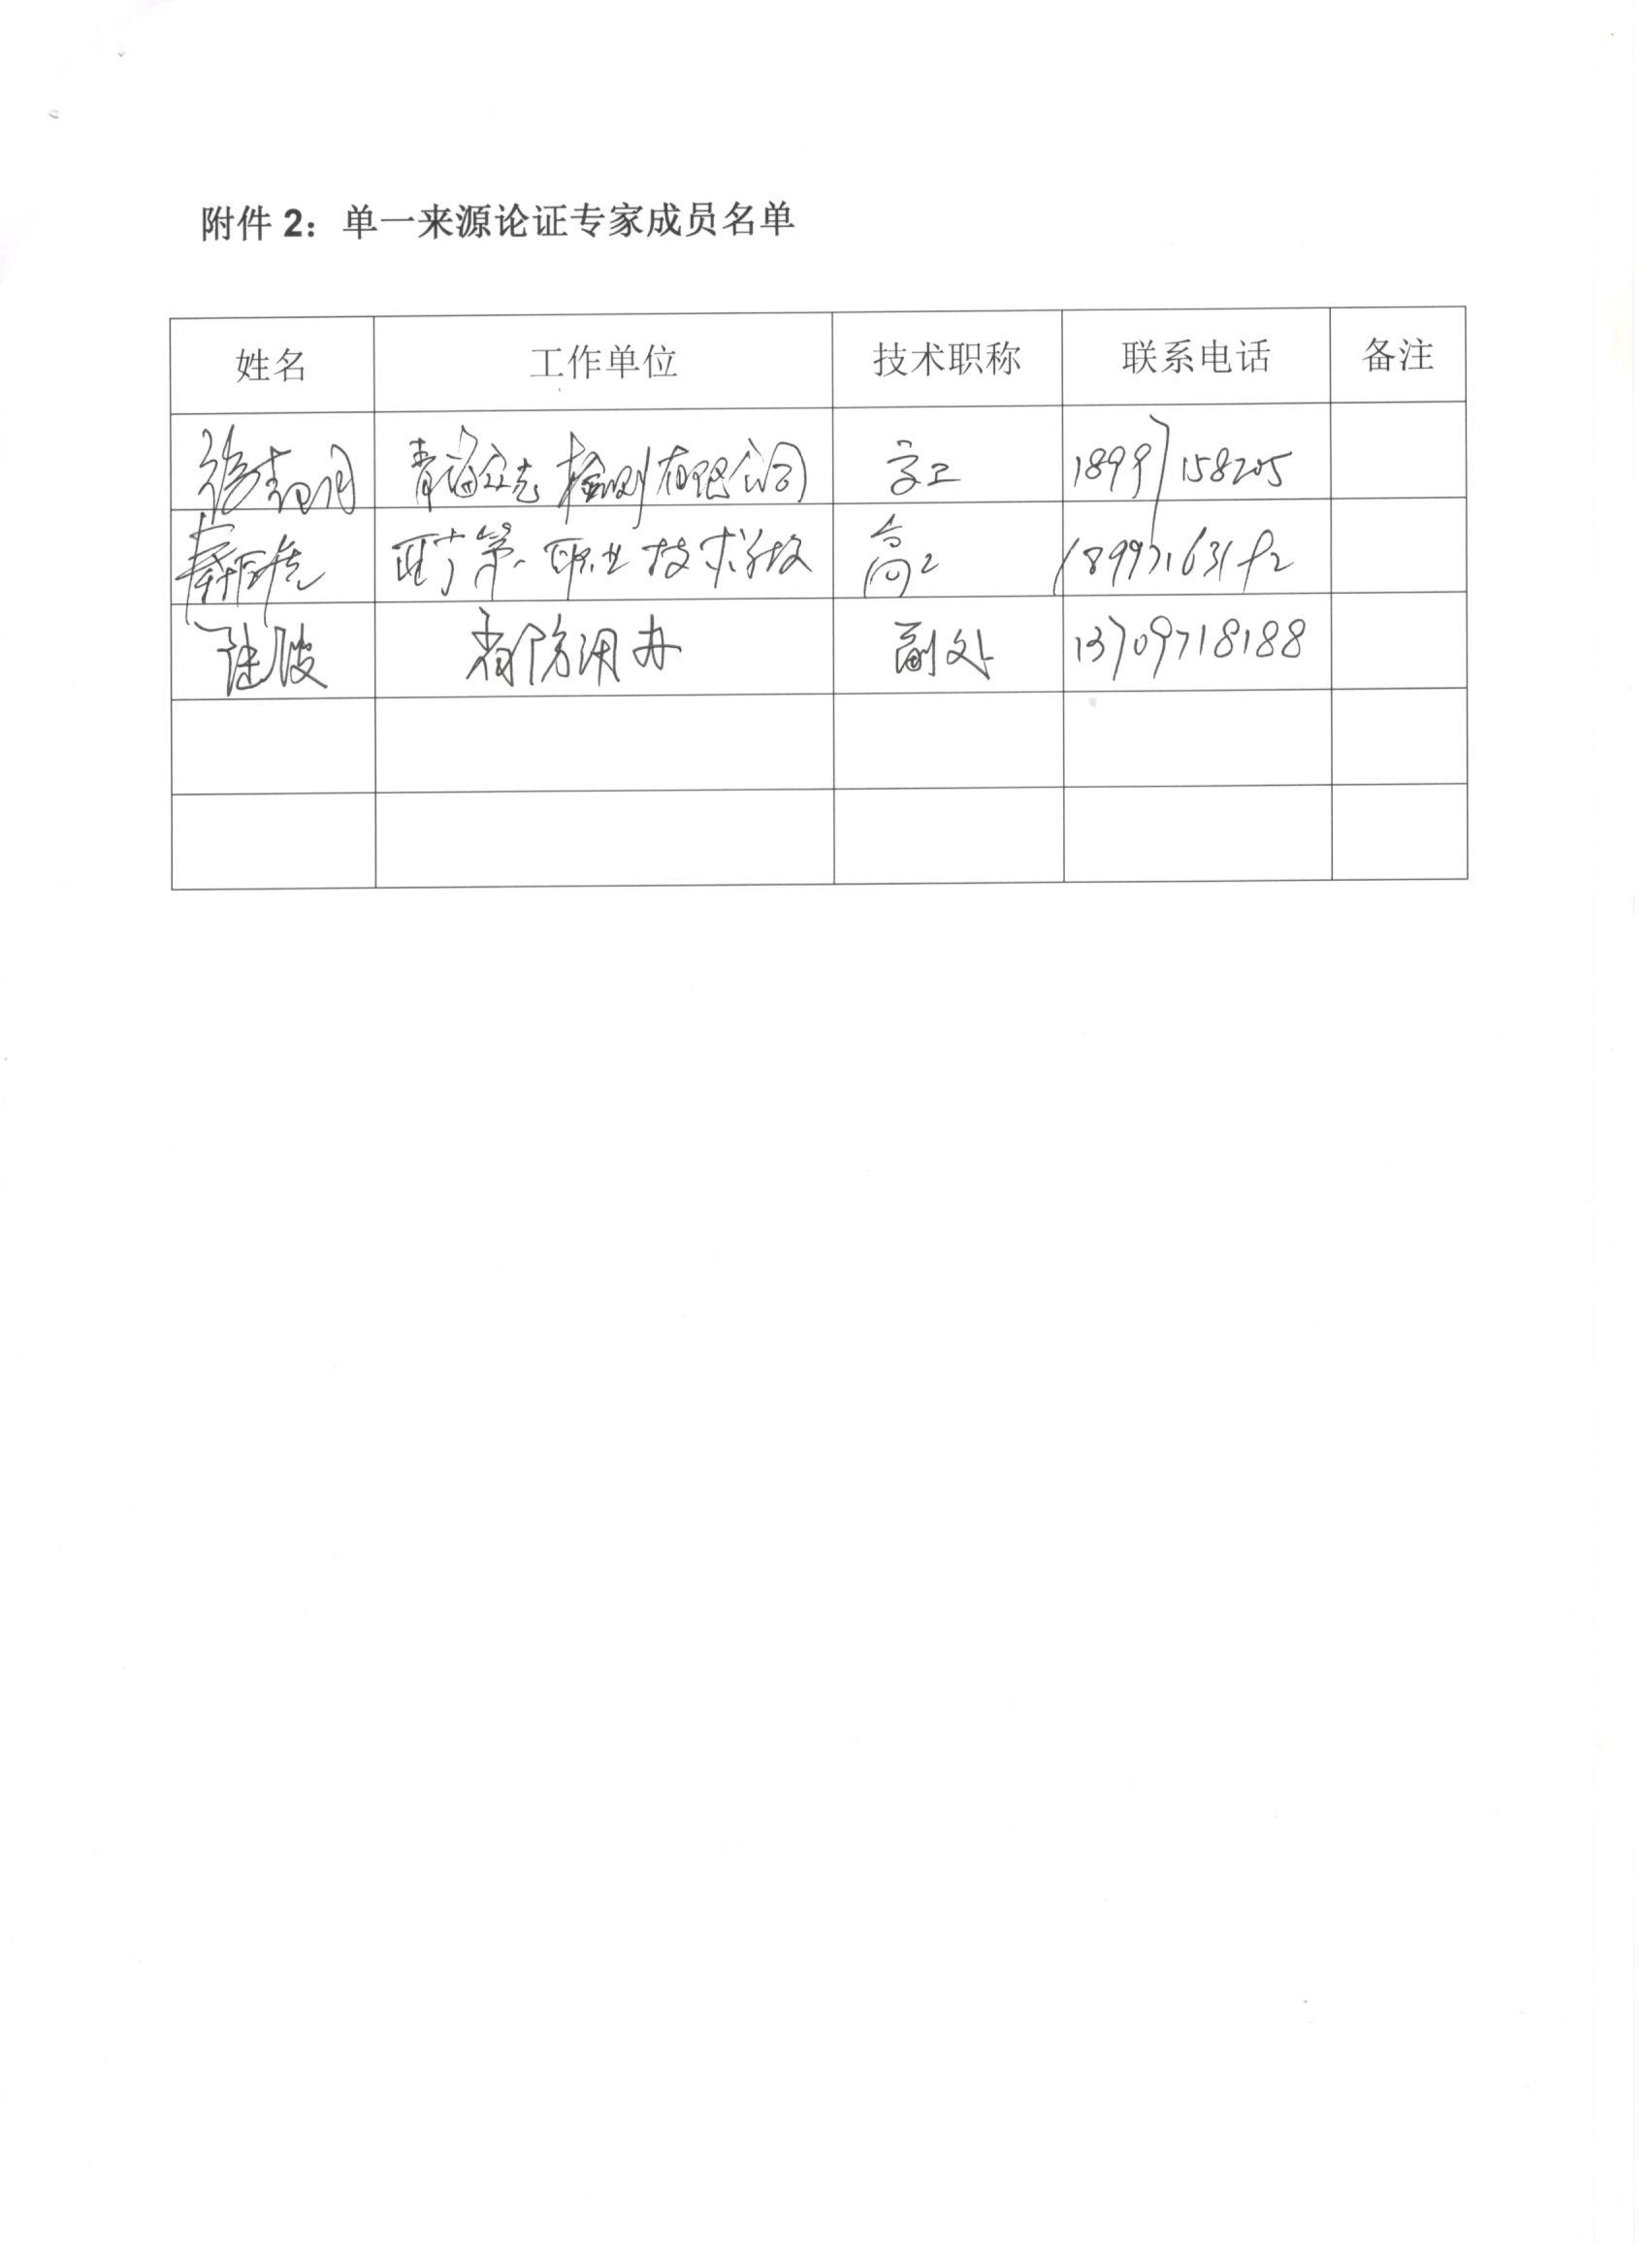 附件 2：单一来源论证专家成员名单
姓名 工作单位 技术职称 联系电话 备注
青海众志检测有限公司 高工 18997158205
西宁第一职业技术学校 高工 189971631
省防汛办 副处 13709718188